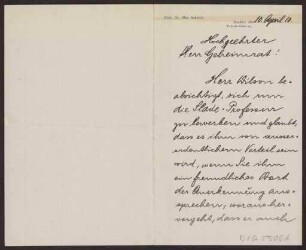 10. April 10.
Hochgeehrter
Herr Geheimrat!
Herr Wilson be-
absichtigt, sich um
die Slade-Professur
zu bewerben und glaubt,
dass es ihm von ausser-
ordentlichem Vorteil sein
wird, wenn Sie ihm
ein freundliches Wort
der Anerkennung aus-
sprechen, woraus her-
vorgeht, dass er auch